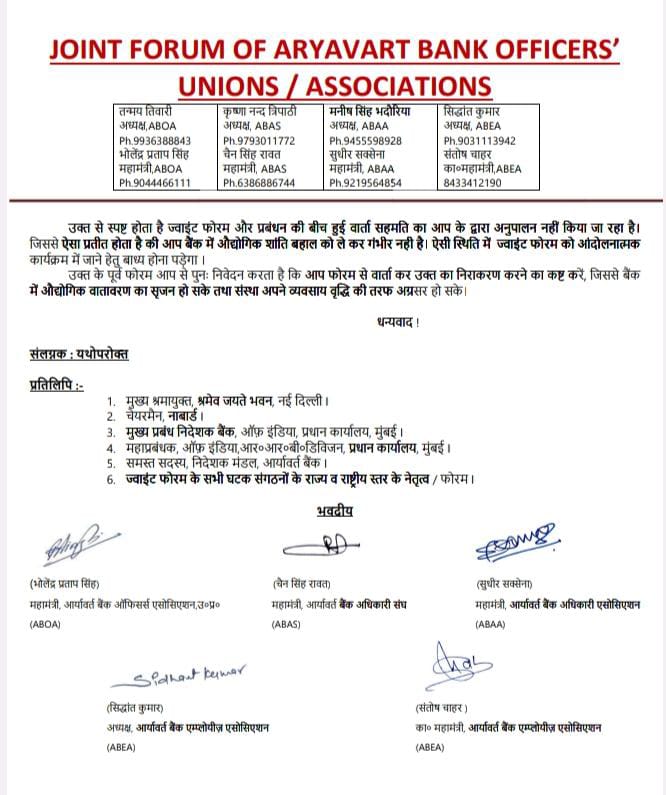 JOINT FORUM OF ARYAVART BANK OFFICERS'
UNIONS / ASSOCIATIONS
तन्मय तिवारी
अध्यक्ष,ABOA
Ph.9936388843
भोलेंद्र प्रताप सिंह
महामंत्री,ABOA
Ph.9044466111
कृष्णा नन्द त्रिपाठी
अध्यक्ष, ABAS
Ph.9793011772
चैन सिंह रावत
महामंत्री, ABAS
Ph.6386886744
मनीष सिंह भदौरिया
अध्यक्ष, ABAA
Ph.9455598928
सुधीर सक्सेना
महामंत्री, ABAA
Ph.9219564854
सिद्धांत कुमार
अध्यक्ष, ABEA
Ph.9031113942
संतोष चाहर
का०महामंत्री,ABEA
8433412190
उक्त से स्पष्ट होता है ज्वाइंट फोरम और प्रबंधन की बीच हुई वार्ता सहमति का आप के द्वारा अनुपालन नहीं किया जा रहा है।
जिससे ऐसा प्रतीत होता है की आप बैंक में औद्योगिक शांति बहाल को ले कर गंभीर नही है। ऐसी स्थिति में ज्वाइंट फोरम को आंदोलनात्मक
कार्यक्रम में जाने हेतु बाध्य होना पड़ेगा ।
उक्त के पूर्व फोरम आप से पुनः निवेदन करता है कि आप फोरम से वार्ता कर उक्त का निराकरण करने का कष्ट करें, जिससे बैंक
में औद्योगिक वातावरण का सृजन हो सके तथा संस्था अपने व्यवसाय वृद्धि की तरफ अग्रसर हो सके।
धन्यवाद !
संलग्नक : यथोपरोक्त
प्रतिलिपि :-
1. मुख्य श्रमायुक्त, श्रमेव जयते भवन, नई दिल्ली ।
2. चेयरमैन, नाबार्ड ।
3. मुख्य प्रबंध निदेशक बैंक, ऑफ़ इंडिया, प्रधान कार्यालय, मुंबई ।
4. महाप्रबंधक, ऑफ़ इंडिया,आर०आर०बी०डिविजन, प्रधान कार्यालय, मुंबई ।
5. समस्त सदस्य, निदेशक मंडल, आर्यावर्त बैंक ।
6. ज्वाइंट फोरम के सभी घटक संगठनों के राज्य व राष्ट्रीय स्तर के नेतृत्व / फोरम ।
भवदीय
(भोलेंद्र प्रताप सिंह)
महामंत्री, आर्यावर्त बैंक ऑफिसर्स एसोसिएशन,उ०प्र०
(ABOA)
(चैन सिंह रावत)
महामंत्री, आर्यावर्त बैंक अधिकारी संघ
(ABAS)
(सुधीर सक्सेना)
महामंत्री, आर्यावर्त बैंक अधिकारी एसोसिएशन
(ABAA)
Sidhant kumar
(सिद्धांत कुमार)
अध्यक्ष, आर्यावर्त बैंक एम्प्लोयीज़ एसोसिएशन
(ABEA)
(संतोष चाहर )
का० महामंत्री, आर्यावर्त बैंक एम्प्लोयीज़ एसोसिएशन
(ABEA)